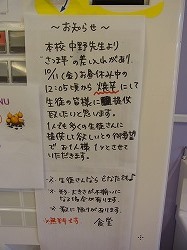 ～お知らせ～
本校 中野先生より
"さつま芋"の差し入れがあり、
10/11(金)お昼休み中の
12:05頃から 焼芋にして
生徒の皆様に 提供
取りたいと思います。
1人でも多くの生徒さんに
提供し欲しいとの仰希望
で お1人様 1ケとさせて
いただきます。
※生徒さんならどなたでも
※形・大きさが不揃いに
なる場合が有ります。
※数に限りがあります。
※無料です
食堂
NU